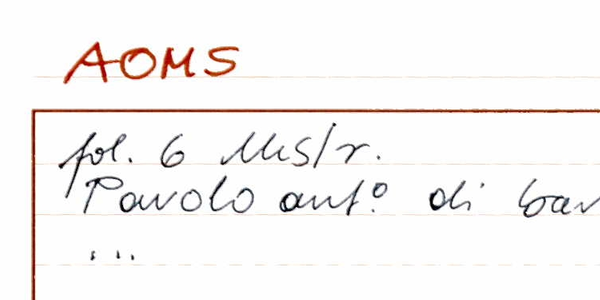 AOMS
fol. 6 Ms/r.
Pavolo ant.º di
...